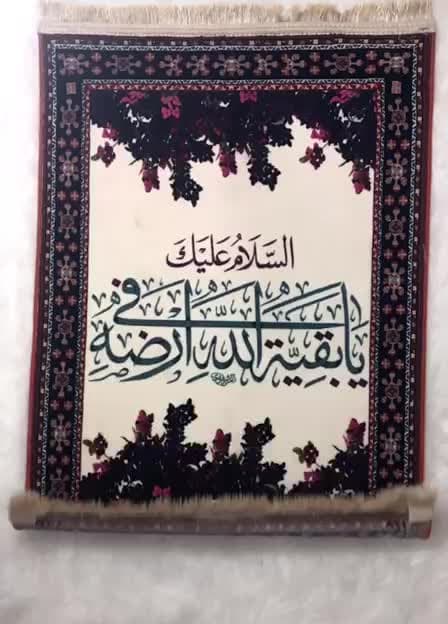 السَّلَامُ عَلَيْكَ
يَا بَقِيَّةَ اللَّهِ فِي أَرْضِهِ